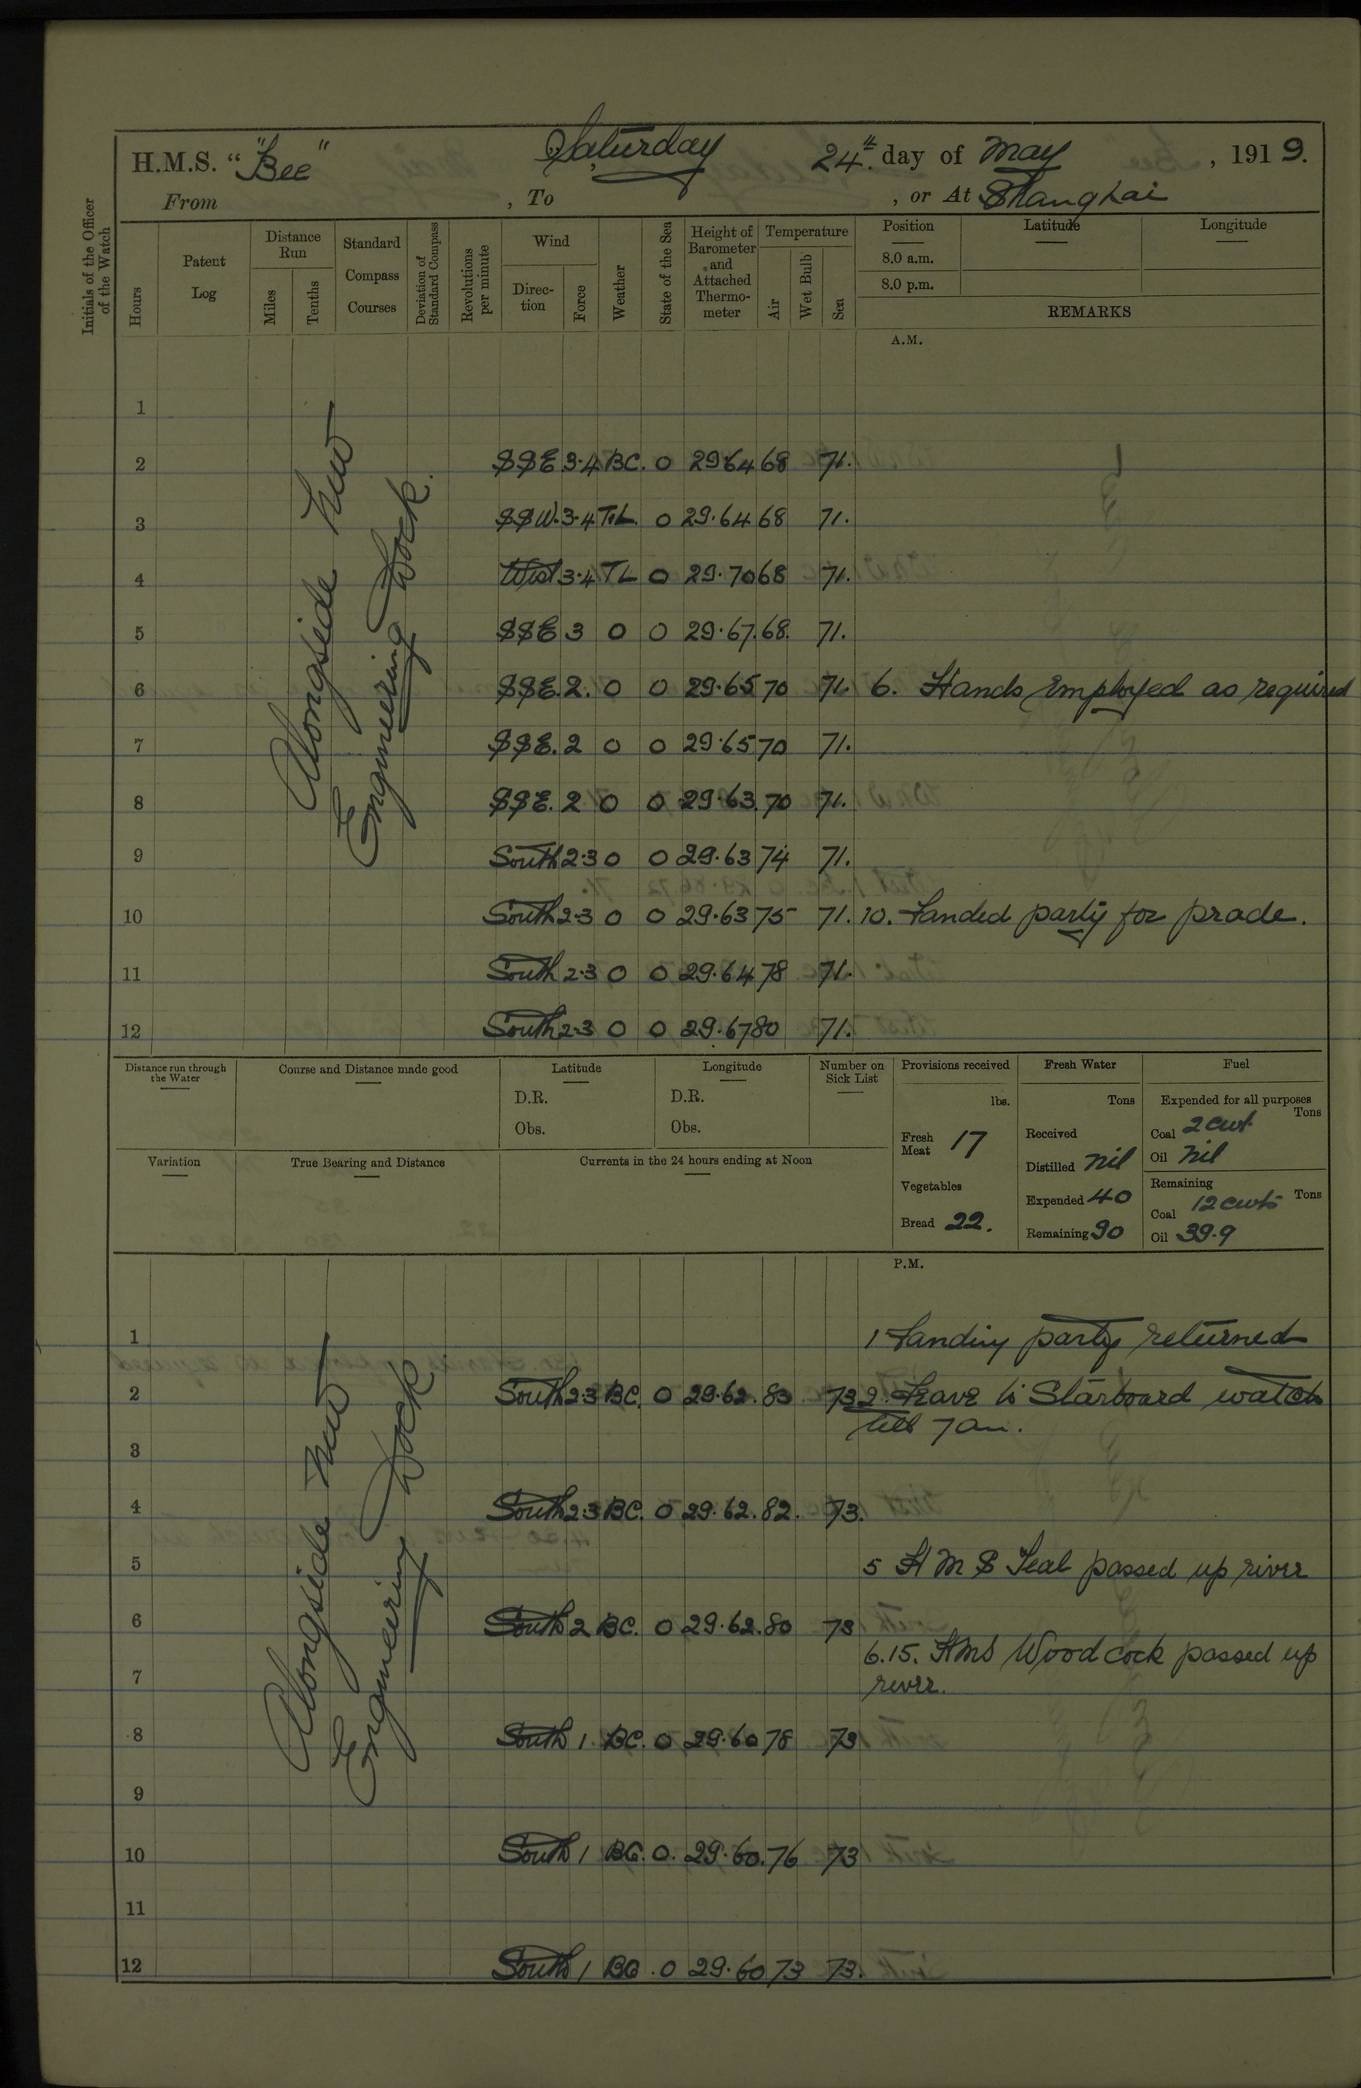 H.M.S. “"Bee" Saturday 24th. day of May, 1919.
From , To , or At Shanghai
Initials of the Officer of the Watch
Hours
Patent Log
Distance Run
Miles
Tenths
Standard Compass Courses
Deviation of Standard Compass
Revolutions per minute
Wind
Direction
Force
Weather
State of the Sea
Height of Barometer and Attached Thermometer
Temperature
Air
Wet Bulb
Sea
Position
8.0 a.m.
8.0 p.m.
Latitude
Longitude
REMARKS
A.M.
Alongside New
Engineering Dock.
1
2 SSE 3.4 BC. 0 29.64 68 71.
3 SSW. 3.4 T.L. 0 29.64 68 71.
4 West 3.4 TL 0 29.70 68 71.
5 SSE 3 0 0 29.67. 68. 71.
6 SSE. 2. 0 0 29.65 70 71. 6. Hands employed as required
7 SSE. 2 0 0 29.65 70 71.
8 SSE. 2 0 0 29.63. 70 71.
9 South 2.3 0 0 29.63 74 71.
10 South 2.3 0 0 29.63 75 71. 10. Landed party for prade.
11 South 2.3 0 0 29.64 78 71.
12 South 2.3 0 0 29.67 80 71.
Distance run through the Water
Course and Distance made good
Latitude
D.R.
Obs.
Longitude
D.R.
Obs.
Number on Sick List
Variation
True Bearing and Distance
Currents in the 24 hours ending at Noon
Provisions received
lbs.
Fresh Meat 17
Vegetables
Bread 22.
Fresh Water
Tons
Received
Distilled nil
Expended 40
Remaining 90
Fuel
Expended for all purposes
Tons
Coal 2 cwt.
Oil nil
Remaining
Tons
Coal 12 cwts
Oil 39.9
P.M.
Alongside New
Engineering Dock
1 1 Landing party returned
2 South 2.3 BC. 0 29.62. 83 73 2. Leave to Starboard watch
till 7 am.
3
4 South 2.3 BC. 0 29.62. 82. 73.
5 5 H M S Teal passed up river
6 South 2 BC. 0 29.62. 80 73
6.15. HMS Woodcock passed up
7 river.
8 South 1. BC. 0 29.60 78 73
9
10 South 1 BC. 0. 29.60. 76 73
11
12 South 1 BC . 0 29.60 73 73.